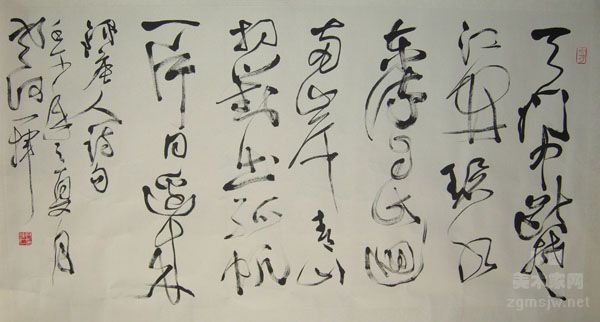 天门中断楚
江开碧水
东流至此迴
两岸青山
相对出孤帆
一片日边来
唐人诗句
壬午之夏月
美术家网
zgmsjw.net